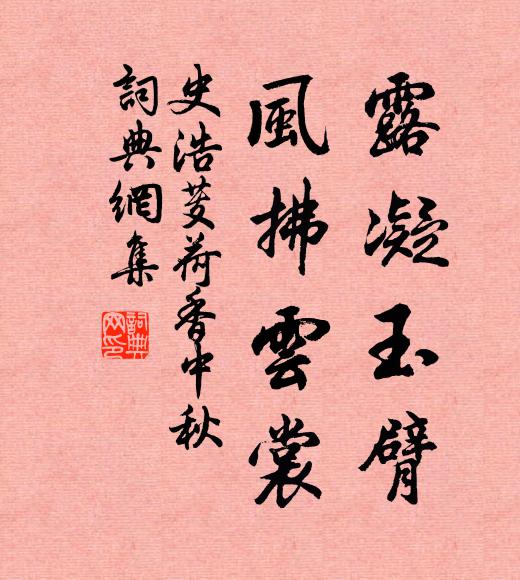 露凝玉臂
風拂雲裳
史浩芰荷香中秋
詞典網集
詞典
网印